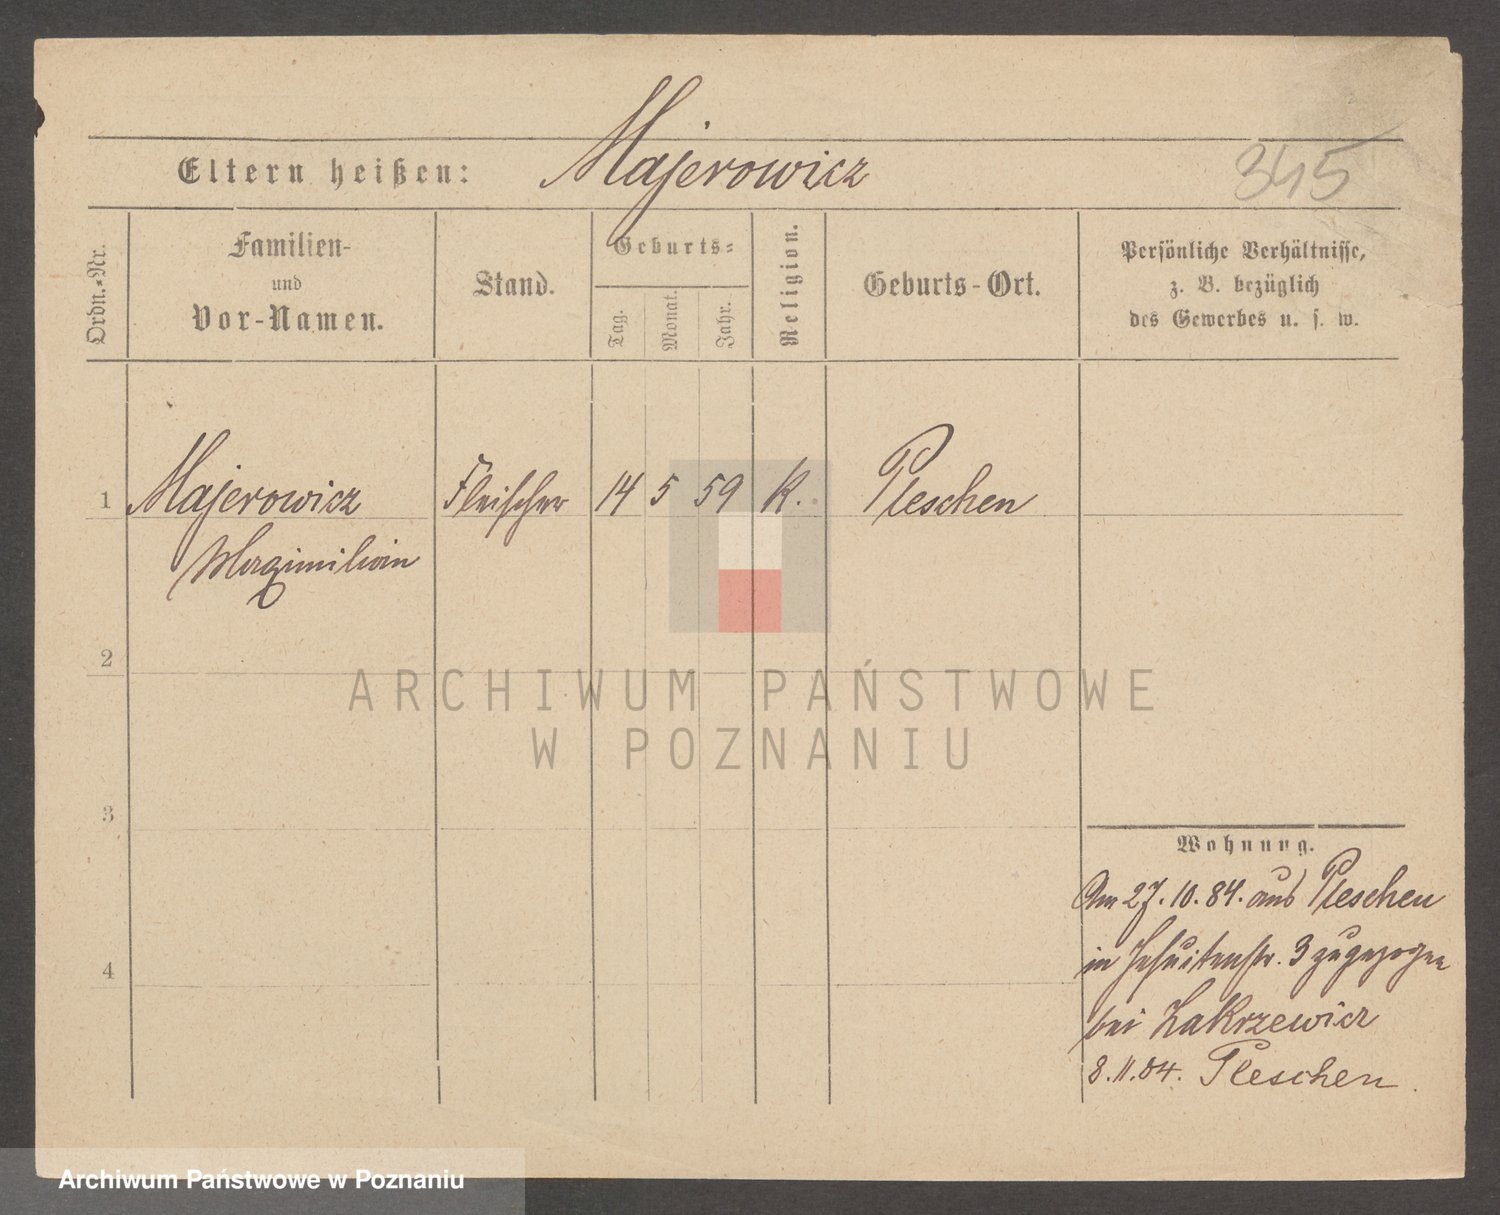 Eltern heißen: Majerowicz
345
Ordn.-Nr.
Familien-
und
Vor-Namen.
Stand.
Geburts-
Tag.
Monat.
Jahr.
Religion.
Geburts-Ort.
Persönliche Verhältnisse,
z. B. bezüglich
des Gewerbes u. s. w.
1 Majerowicz Fleischer 14 5 59 K. Pleschen
Maximilian
2
3
4
Wohnung.
Am 27.10.84. aus Pleschen
in Jesuitenstr. 3 zugezogen
bei Zakrzewicz
8.11.84. Pleschen
ARCHIWUM PAŃSTWOWE
W POZNANIU
Archiwum Państwowe w Poznaniu